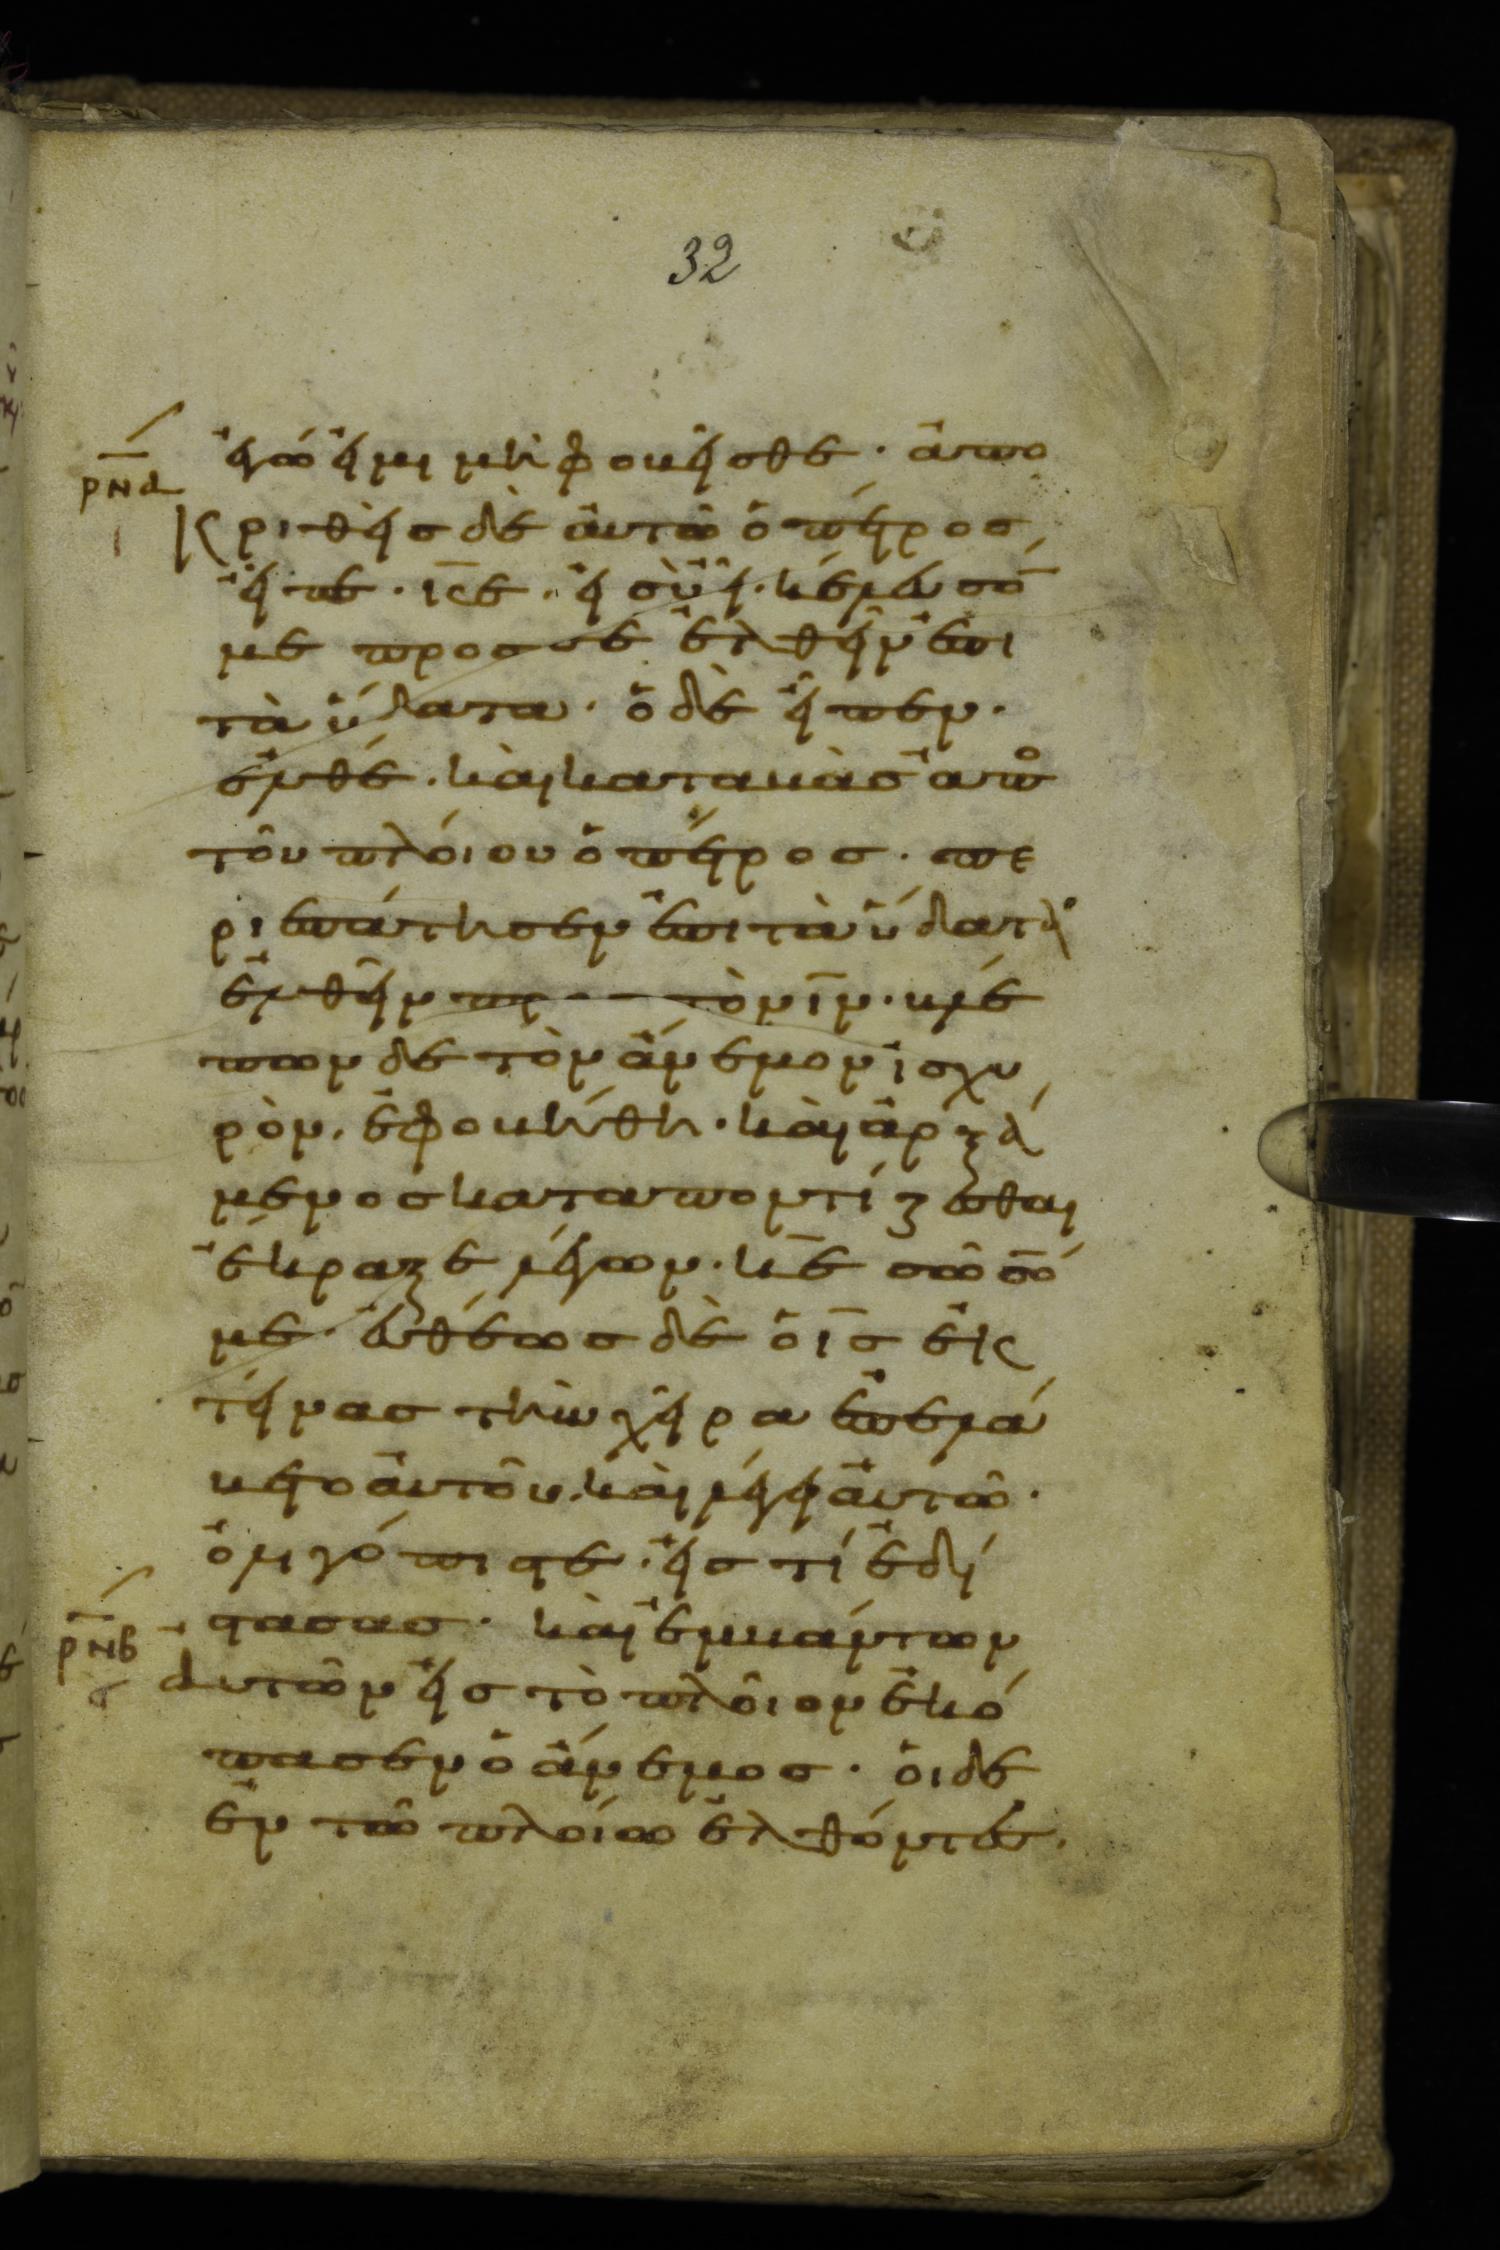 32
ἐγώ εἰμι μὴ φοβεῖσθε· ἀπο
ρ̅ν̅α̅
ι
κριθεὶς δὲ αὐτῶ ὁ πέτρος
εἶπε· κ̅ε̅· εἰ σὺ εἶ· κέλευσόν
με προς σε ἐλθεῖν ἐπι
τὰ ὕδατα· ὁ δὲ εἶπεν·
ἐλθέ· καὶ καταβὰς ἀπὸ
τοῦ πλοίου ὁ πέτρος· πε
ριεπάτησεν ἐπι τὰ ὕδατα
ἐλθεῖν προς τὸν ι̅ν̅· βλέ
πων δὲ τὸν ἄνεμον ἰσχυ
ρὸν· ἐφοβήθη· καὶ ἀρξά
μενος καταποντίζεσθαι
ἔκραξε λέγων· κ̅ε̅ σῶσόν
με· εὐθέως δὲ ὁ ι̅ς̅ ἐκ
τείνας τὴν χεῖρα ἐπελά
βετο αὐτοῦ· καὶ λέγει αὐτῶ·
ὀλιγόπιστε· εἰς τί ἐδί
στασας· καὶ ἐμβάντων
ρ̅ν̅β̅
ς
αὐτῶν εἰς τὸ πλοῖον ἐκό
πασεν ὁ ἄνεμος· οἱ δὲ
ἐν τῶ πλοίω ἐλθόντες·